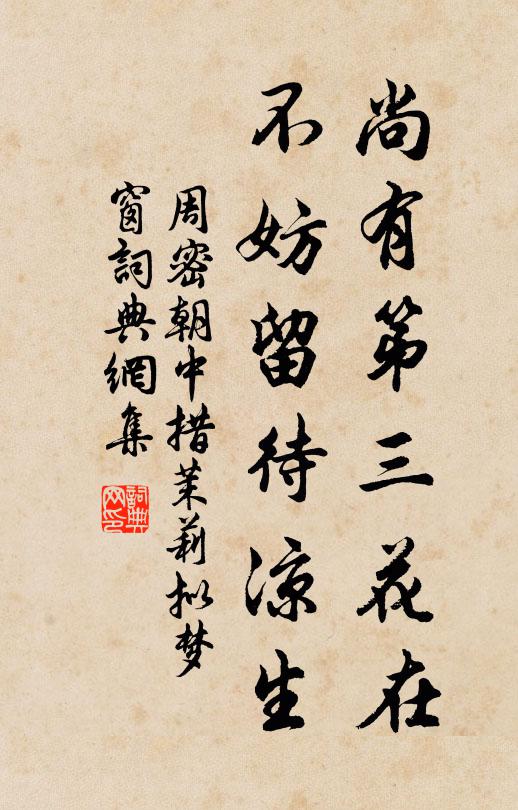 尚有第三花在
不妨留待凉生
周密朝中措茉莉拟梦
窗詞典網集
詞典
网印